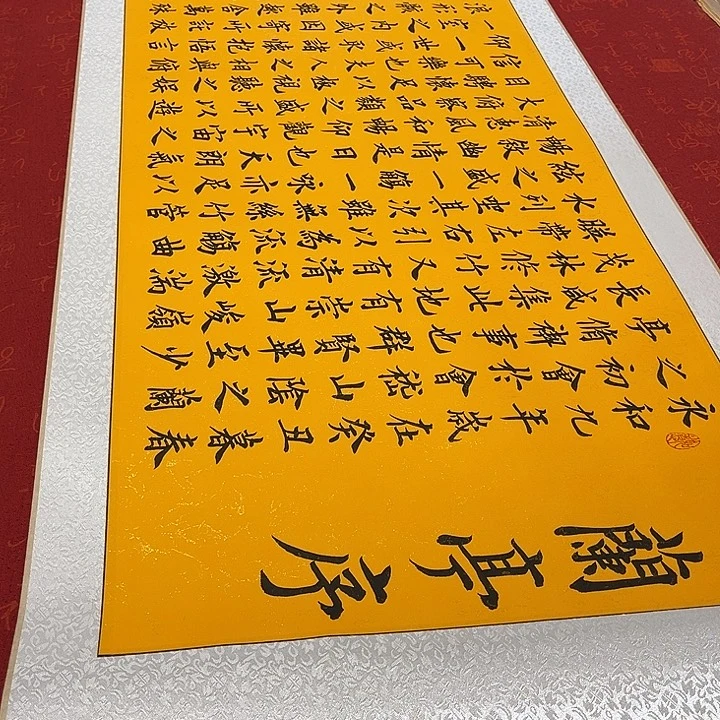 蘭亭序
永和九年歲在癸丑暮春
之初會於會嵇山陰之蘭
亭脩禊事也群賢畢至少
長咸集此地有崇山峻嶺
茂林修竹又有清流激湍
暎帶左右引以為流觴曲
水列坐其次雖無絲竹管
絃之盛一觴一詠亦足以
暢敘幽情是日也天朗氣
清惠風和暢仰觀宇宙之
大俯察品類之盛所以遊
目騁懷足以極視聽之娛
信可樂也夫人之相與俯
仰一世或取諸懷抱悟言
一室之內或因寄所託放